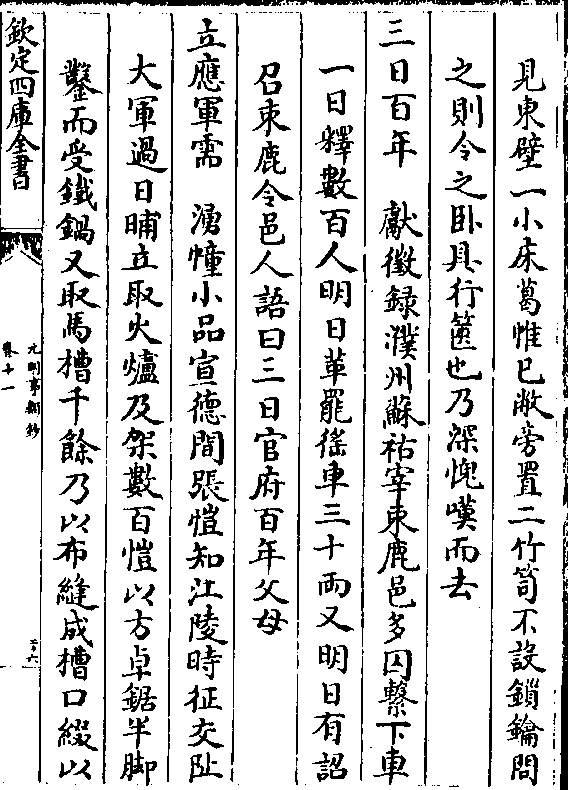 見東壁一小床葛帷已敝旁置二竹笥不設鎖鑰問
之則令之卧具行篋也乃深愧嘆而去
三日百年　獻徵錄濮州蘇祐宰束鹿邑多囚繫下車
一日釋數百人明日革罷徭車三十兩又明日有詔
召束鹿令邑人語曰三日官府百年父母
立應軍需　湧幢小品宣德間張愷知江陵時征交阯
大軍過日晡立取火爐及架數百愷以方卓鋸半脚
鑿而受鐵鍋又取馬槽千餘乃以布縫成槽口綴以
欽定四庫全書
元明事類鈔
卷十一
二十六